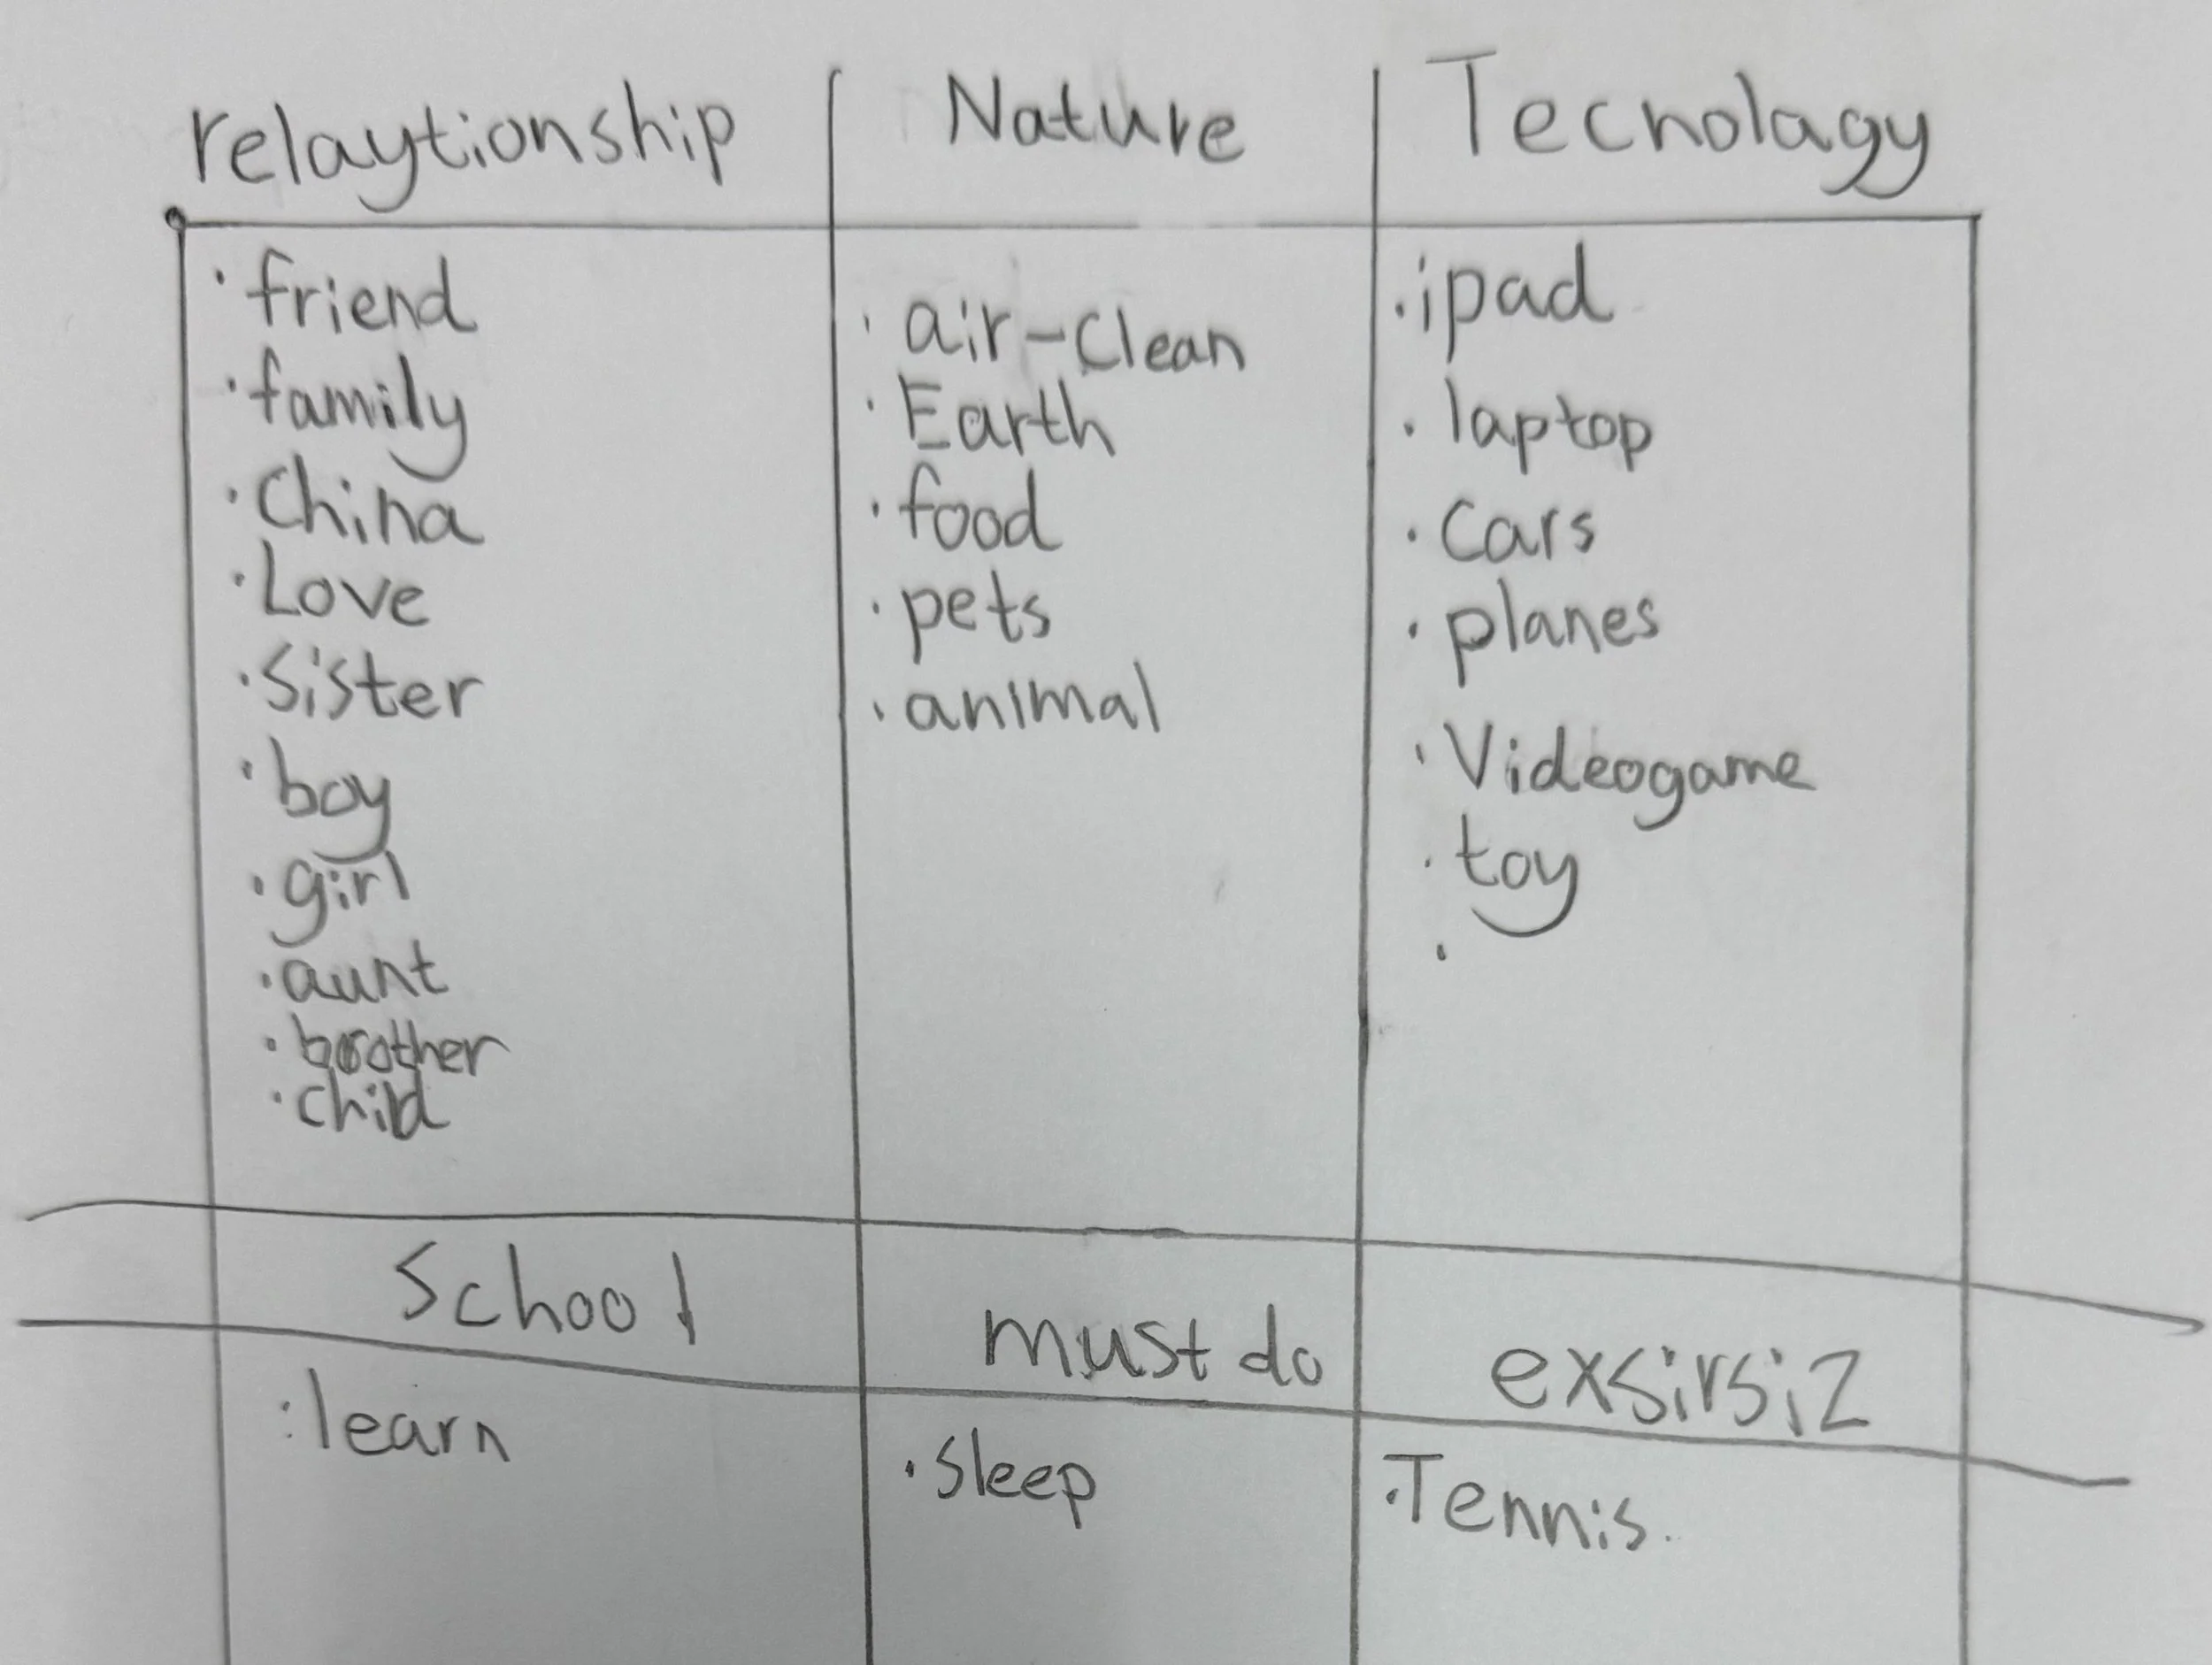 relaytionship
Nature
Tecnolagy
· friend
· family
· China
· Love
· Sister
· boy
· girl
· aunt
· brother
· child
· air-Clean
· Earth
· food
· pets
· animal
· ipad
· laptop
· Cars
· planes
· Videogame
· toy
·
School
must do
exsirsiz
: learn
· Sleep
· Tennis.